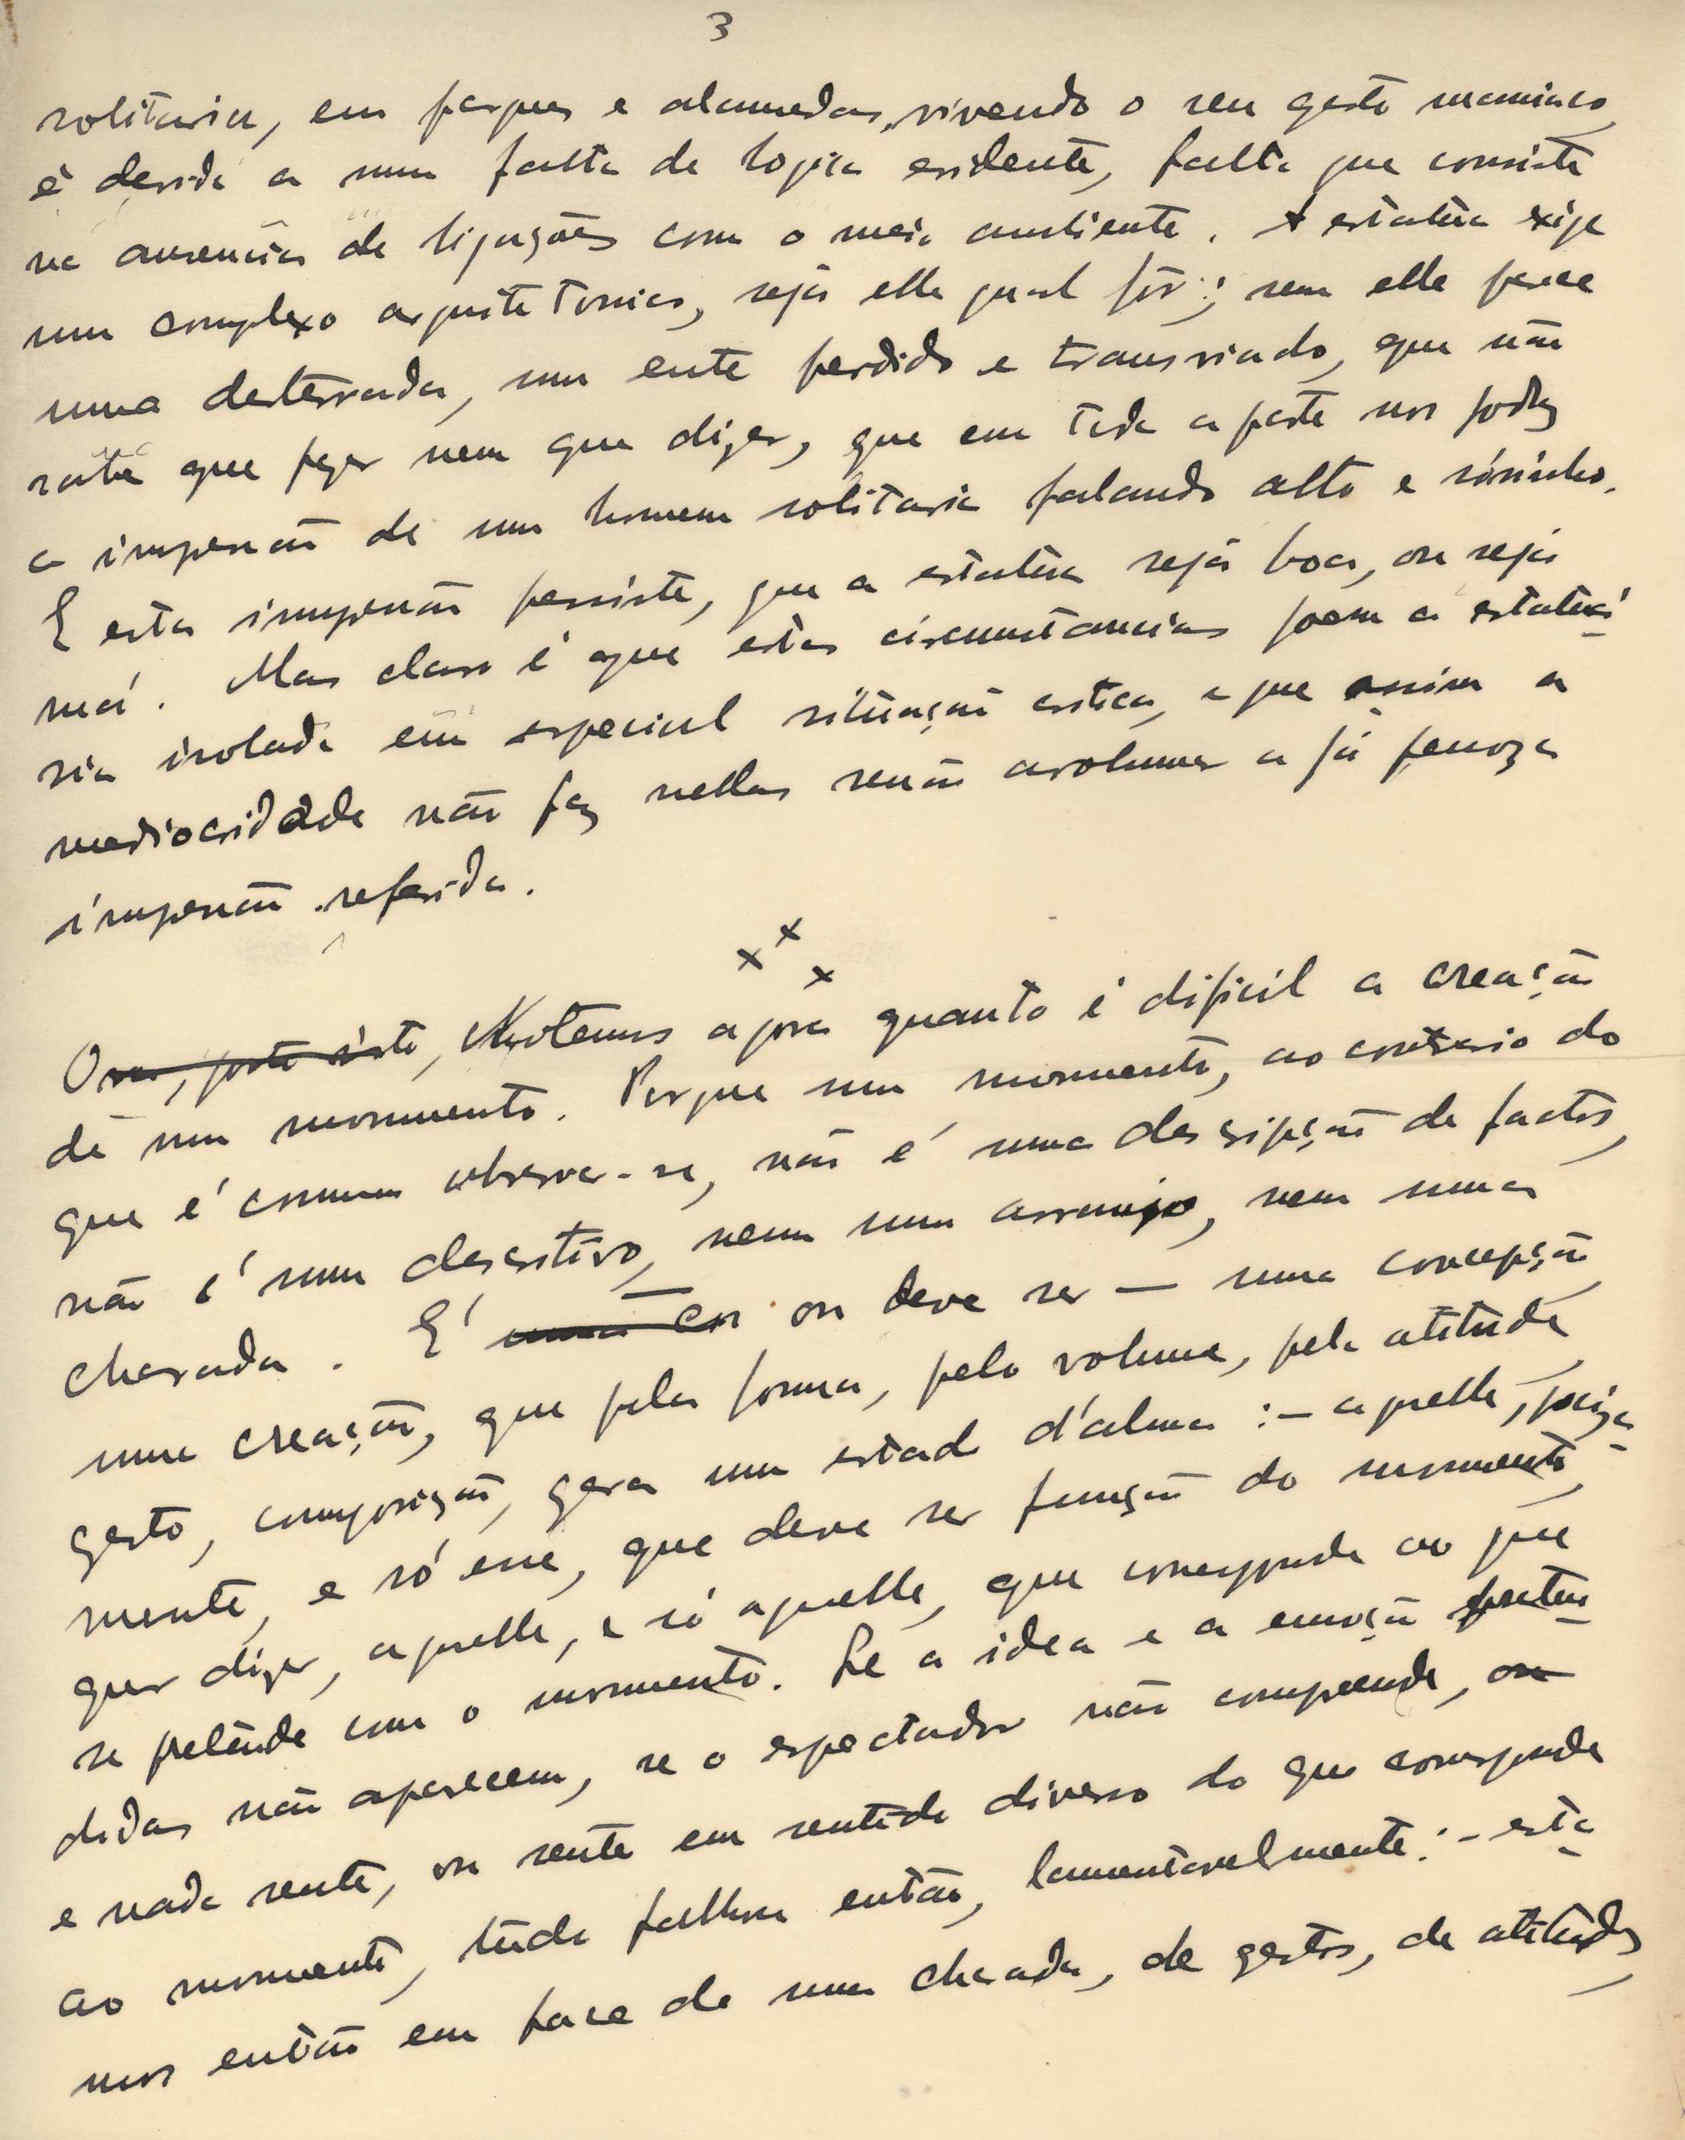 3
solitaria, em parques e alamedas, vivendo o seu gesto maniaco,
é devida a uma falta de logica evidente, falta que consiste
na ausencia de ligações com o meio ambiente. A estatua exige
um complexo arquitetonico, seja elle qual fôr; sem elle parece
uma desterrada, um ente perdido e transviado, que não
sabe que fazer nem que dizer, que em toda a parte nos produz
a impressão de um homem solitario falando alto e sósinho.
E esta impressão persiste, quer a estatua seja boa, ou seja
má. Mas claro é que estas circumstancias poem a estatua-
ria isolada em especial situação critica, e que assim a
mediocridade não faz nellas senão avolumar a já penoza
impressão referida.
x x x
Ora, posto isto, Notemos agora quanto é dificil a creação
de um monumento. Porque um monumento, ao contrario do
que é comum observar-se, não é uma descripção de factos,
não é um descritivo, nem um arranjo, nem uma
charada. E' uma con ou deve ser — uma concepção,
uma creação, que pela forma, pelo volume, pela atitude,
gesto, composição, gera um estado d'alma :- aquelle, preciza-
mente, e só esse, que deve ser função do monumento,
quer dizer, aquelle, e só aquelle, que corresponde ao que
se pretende com o monumento. Se a idea e a emoção preten-
didas não aparecem, se o espectador não comprende, ou
e nada sente, ou sente em sentido diverso do que corresponde
ao monumento, tudo falhou então, lamentavelmente :- esta-
mos então em face de uma charada, de gestos, de atitudes,